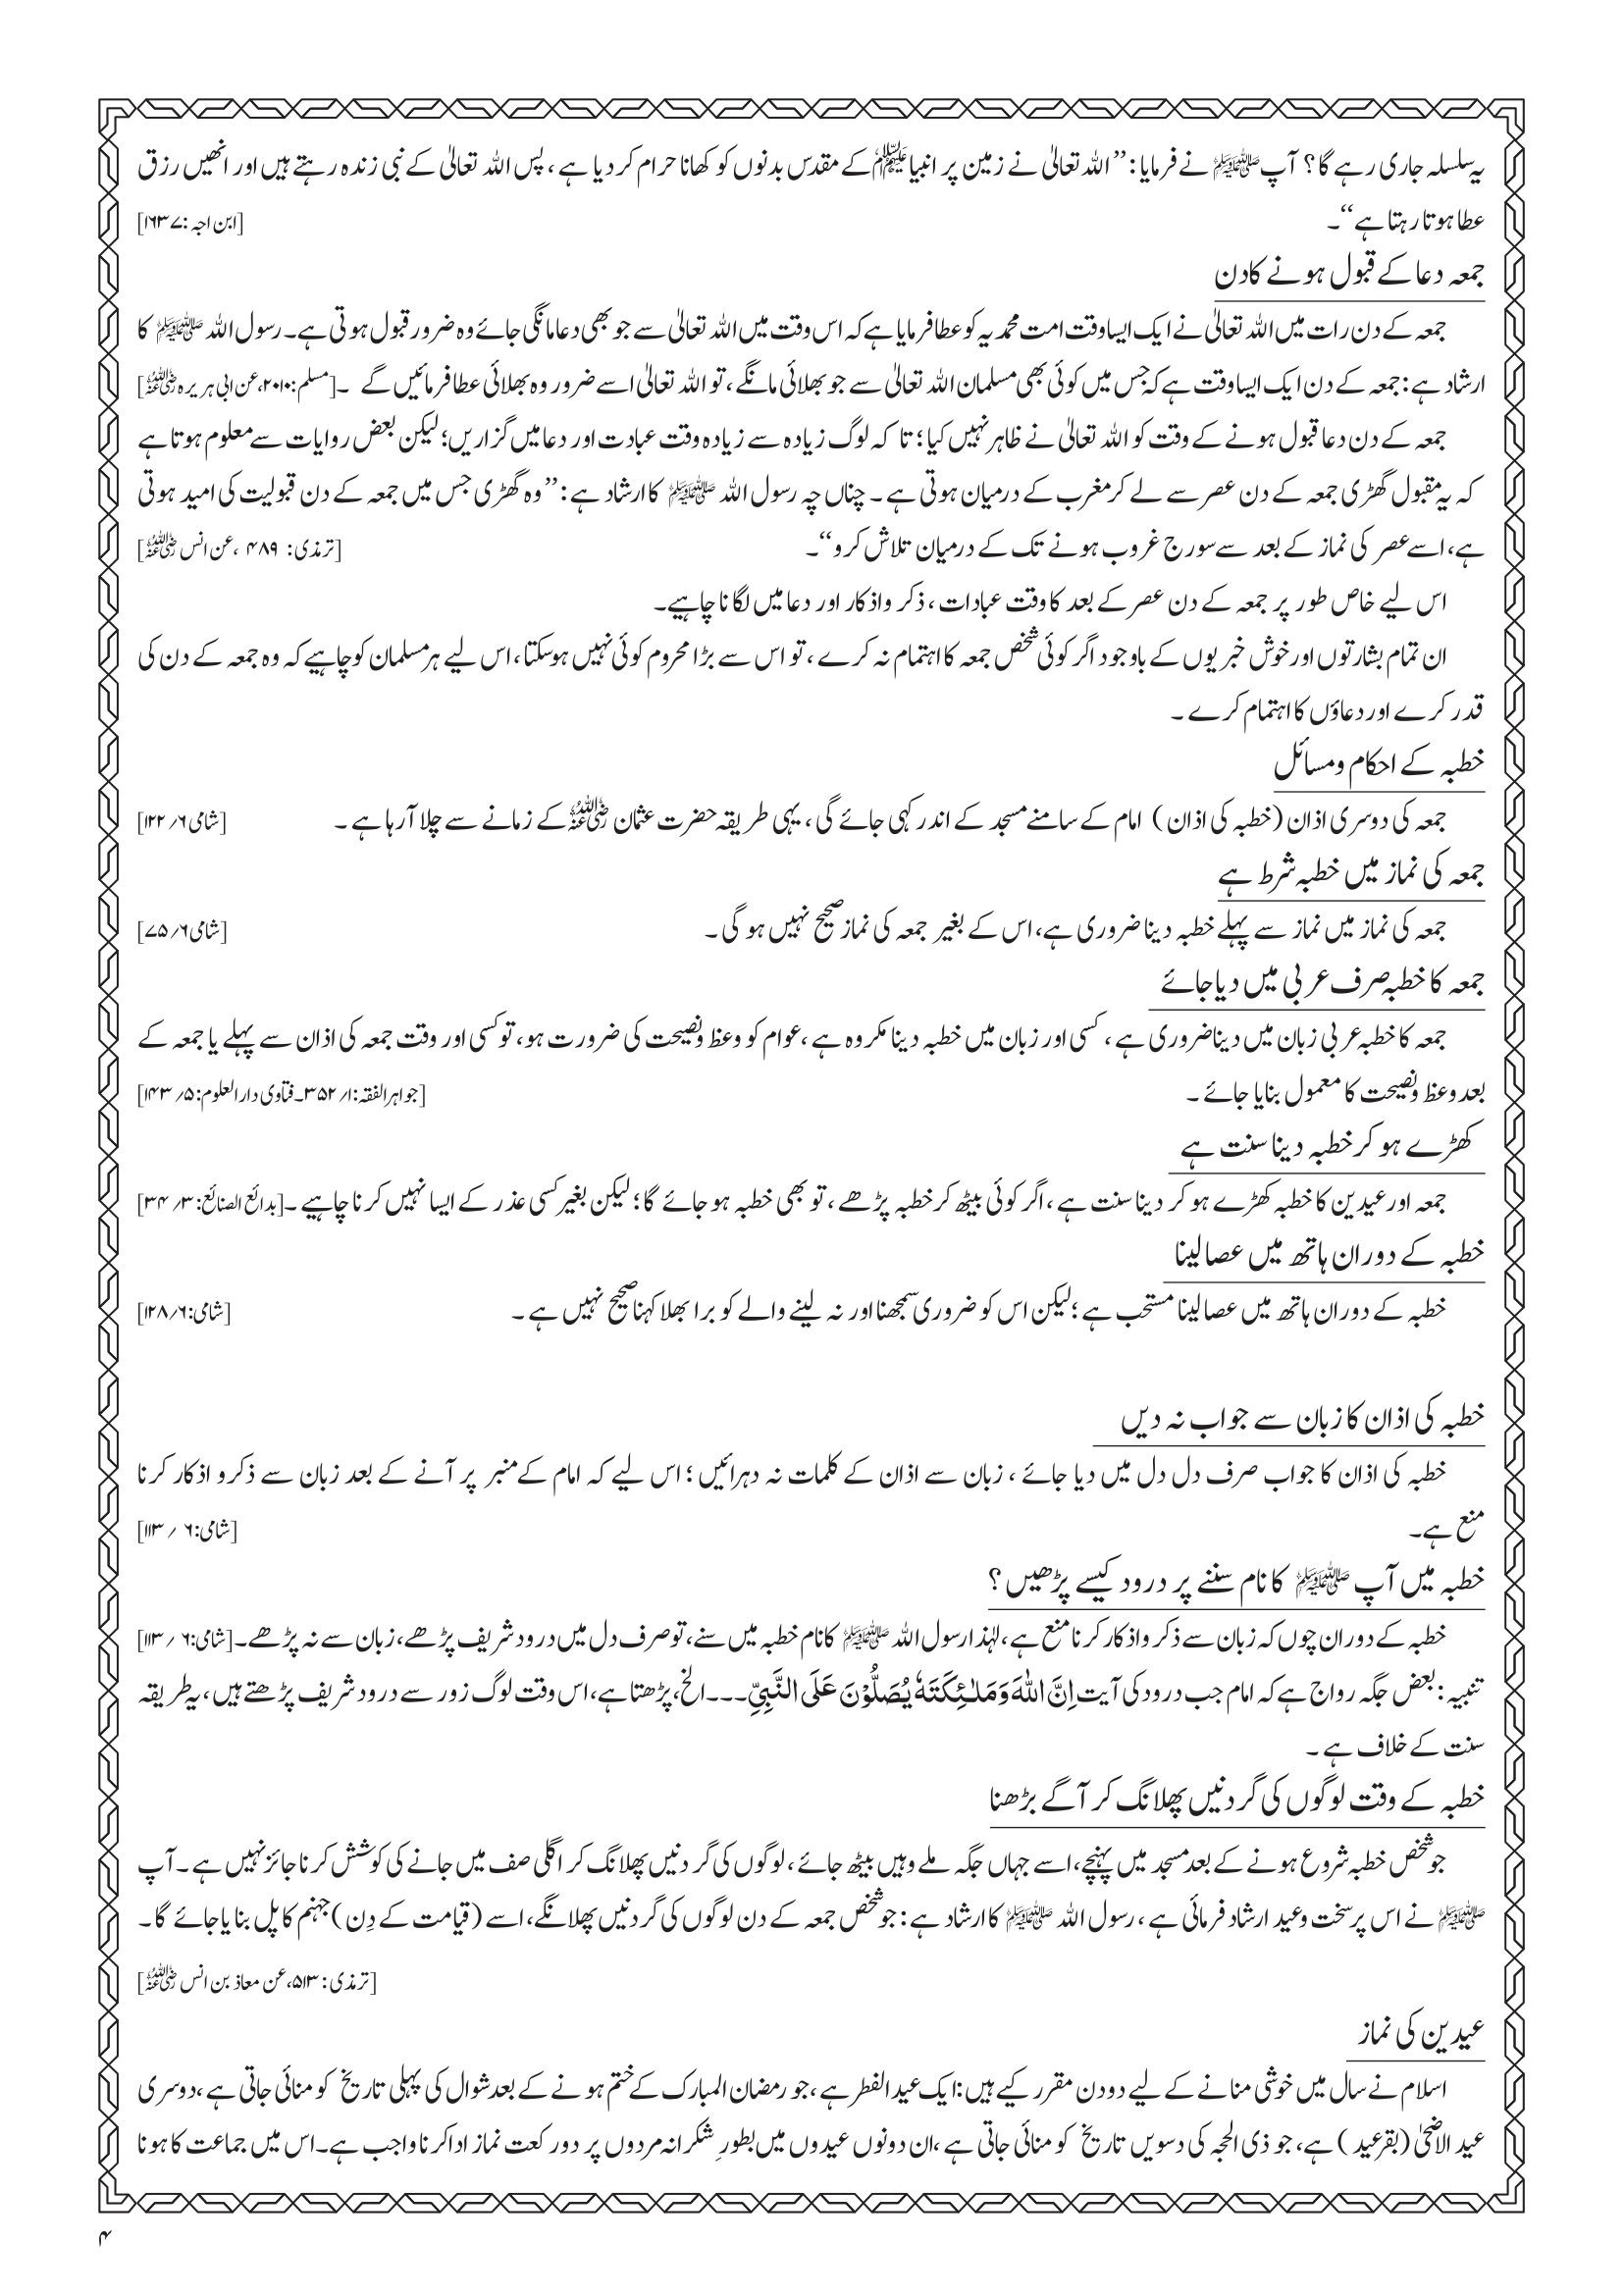 یہ سلسلہ جاری رہے گا؟ آپ ﷺ نے فرمایا: ’’اللہ تعالیٰ نے زمین پر انبیا علیہم السلام کے مقدس بدنوں کو کھانا حرام کر دیا ہے، پس اللہ تعالیٰ کے نبی زندہ رہتے ہیں اور انھیں رزق
عطا ہوتا رہتا ہے‘‘۔ [ابن اجہ: ۱۶۳۷]
جمعہ دعا کے قبول ہونے کا دن
جمعہ کے دن رات میں اللہ تعالیٰ نے ایک ایسا وقت امت محمدیہ کو عطا فرمایا ہے کہ اس وقت میں اللہ تعالیٰ سے جو بھی دعا مانگی جائے وہ ضرور قبول ہوتی ہے۔ رسول اللہ ﷺ کا
ارشاد ہے: جمعہ کے دن ایک ایسا وقت ہے کہ جس میں کوئی بھی مسلمان اللہ تعالیٰ سے جو بھلائی مانگے، تو اللہ تعالیٰ اسے ضرور وہ بھلائی عطا فرمائیں گے ۔ [مسلم: ۲۰۱۰، عن ابی ہریرہ رضی اللہ عنہ]
جمعہ کے دن دعا قبول ہونے کے وقت کو اللہ تعالیٰ نے ظاہر نہیں کیا؛ تا کہ لوگ زیادہ سے زیادہ وقت عبادت اور دعا میں گزاریں؛ لیکن بعض روایات سے معلوم ہوتا ہے
کہ یہ مقبول گھڑی جمعہ کے دن عصر سے لے کر مغرب کے درمیان ہوتی ہے۔ چناں چہ رسول اللہ ﷺ کا ارشاد ہے: ’’وہ گھڑی جس میں جمعہ کے دن قبولیت کی امید ہوتی
ہے، اسے عصر کی نماز کے بعد سے سورج غروب ہونے تک کے درمیان تلاش کرو‘‘۔ [ترمذی: ۴۸۹، عن انس رضی اللہ عنہ]
اس لیے خاص طور پر جمعہ کے دن عصر کے بعد کا وقت عبادات، ذکر واذکار اور دعا میں لگانا چاہیے۔
ان تمام بشارتوں اور خوش خبریوں کے باوجود اگر کوئی شخص جمعہ کا اہتمام نہ کرے، تو اس سے بڑا محروم کوئی نہیں ہوسکتا، اس لیے ہر مسلمان کو چاہیے کہ وہ جمعہ کے دن کی
قدر کرے اور دعاؤں کا اہتمام کرے۔
خطبہ کے احکام ومسائل
جمعہ کی دوسری اذان (خطبہ کی اذان) امام کے سامنے مسجد کے اندر کہی جائے گی، یہی طریقہ حضرت عثمان رضی اللہ عنہ کے زمانے سے چلا آرہا ہے۔ [شامی ۶/ ۱۲۲]
جمعہ کی نماز میں خطبہ شرط ہے
جمعہ کی نماز میں نماز سے پہلے خطبہ دینا ضروری ہے، اس کے بغیر جمعہ کی نماز صحیح نہیں ہوگی۔ [شامی ۶/ ۷۵]
جمعہ کا خطبہ صرف عربی میں دیا جائے
جمعہ کا خطبہ عربی زبان میں دینا ضروری ہے، کسی اور زبان میں خطبہ دینا مکروہ ہے، عوام کو وعظ ونصیحت کی ضرورت ہو، تو کسی اور وقت جمعہ کی اذان سے پہلے یا جمعہ کے
بعد وعظ ونصیحت کا معمول بنایا جائے۔ [جواہر الفقہ: ۱/ ۳۵۲۔ فتاوی دارالعلوم: ۵/ ۱۴۳]
کھڑے ہو کر خطبہ دینا سنت ہے
جمعہ اور عیدین کا خطبہ کھڑے ہو کر دینا سنت ہے، اگر کوئی بیٹھ کر خطبہ پڑھے، تو بھی خطبہ ہو جائے گا؛ لیکن بغیر کسی عذر کے ایسا نہیں کرنا چاہیے۔ [بدائع الصنائع: ۳/ ۳۴]
خطبہ کے دوران ہاتھ میں عصا لینا
خطبہ کے دوران ہاتھ میں عصا لینا مستحب ہے؛ لیکن اس کو ضروری سمجھنا اور نہ لینے والے کو برا بھلا کہنا صحیح نہیں ہے۔ [شامی: ۶/ ۱۲۸]
خطبہ کی اذان کا زبان سے جواب نہ دیں
خطبہ کی اذان کا جواب صرف دل دل میں دیا جائے، زبان سے اذان کے کلمات نہ دہرائیں؛ اس لیے کہ امام کے منبر پر آنے کے بعد زبان سے ذکرو اذکار کرنا
منع ہے۔ [شامی: ۶ / ۱۱۳]
خطبہ میں آپ ﷺ کا نام سننے پر درود کیسے پڑھیں؟
خطبہ کے دوران چوں کہ زبان سے ذکر واذکار کرنا منع ہے، لہٰذا رسول اللہ ﷺ کا نام خطبہ میں سنے، تو صرف دل میں درود شریف پڑھے، زبان سے نہ پڑھے۔ [شامی: ۶ / ۱۱۳]
تنبیہ: بعض جگہ رواج ہے کہ امام جب درود کی آیت اِنَّ اللّٰہَ وَمَلٰئِکَتَہٗ یُصَلُّوْنَ عَلَی النَّبِیِّ۔۔۔الخ، پڑھتا ہے، اس وقت لوگ زور سے درود شریف پڑھتے ہیں، یہ طریقہ
سنت کے خلاف ہے۔
خطبہ کے وقت لوگوں کی گردنیں پھلانگ کر آگے بڑھنا
جو شخص خطبہ شروع ہونے کے بعد مسجد میں پہنچے، اسے جہاں جگہ ملے وہیں بیٹھ جائے، لوگوں کی گردنیں پھلانگ کر اگلی صف میں جانے کی کوشش کرنا جائز نہیں ہے۔ آپ
ﷺ نے اس پر سخت وعید ارشاد فرمائی ہے، رسول اللہ ﷺ کا ارشاد ہے: جو شخص جمعہ کے دن لوگوں کی گردنیں پھلانگے، اسے (قیامت کے دِن) جہنم کا پل بنایا جائے گا۔
[ترمذی: ۵۱۳، عن معاذ بن انس رضی اللہ عنہ]
عیدین کی نماز
اسلام نے سال میں خوشی منانے کے لیے دو دن مقرر کیے ہیں: ایک عید الفطر ہے، جو رمضان المبارک کے ختم ہونے کے بعد شوال کی پہلی تاریخ کو منائی جاتی ہے، دوسری
عید الاضحیٰ (بقرعید) ہے، جو ذی الحجہ کی دسویں تاریخ کو منائی جاتی ہے، ان دونوں عیدوں میں بطورِ شکرانہ مردوں پر دو رکعت نماز ادا کرنا واجب ہے۔ اس میں جماعت کا ہونا
۴